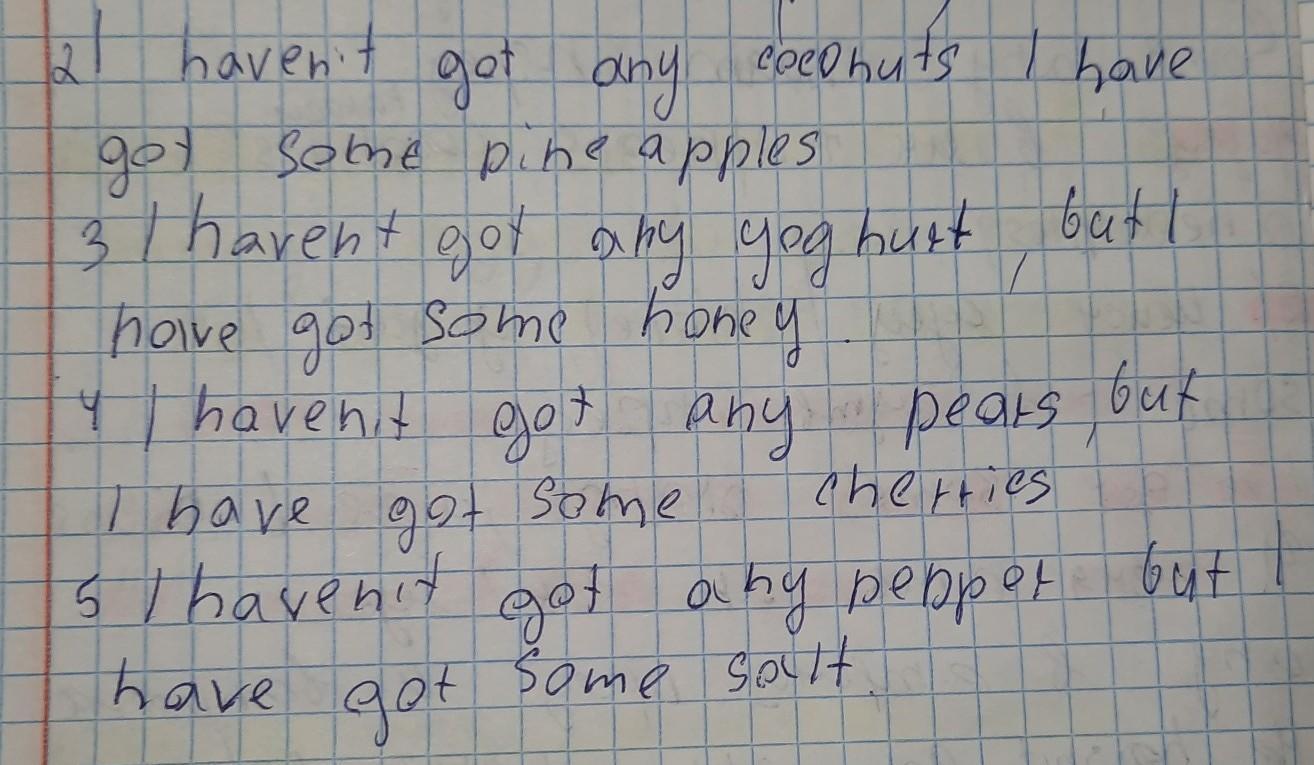 2 I haven't got any coconuts I have
got some pineapples
3 I havent got any yoghurt, but I
have got some honey.
4 I haven't got any pears, but
I have got some cherries
5 I haven't got any pepper but I
have got some salt.